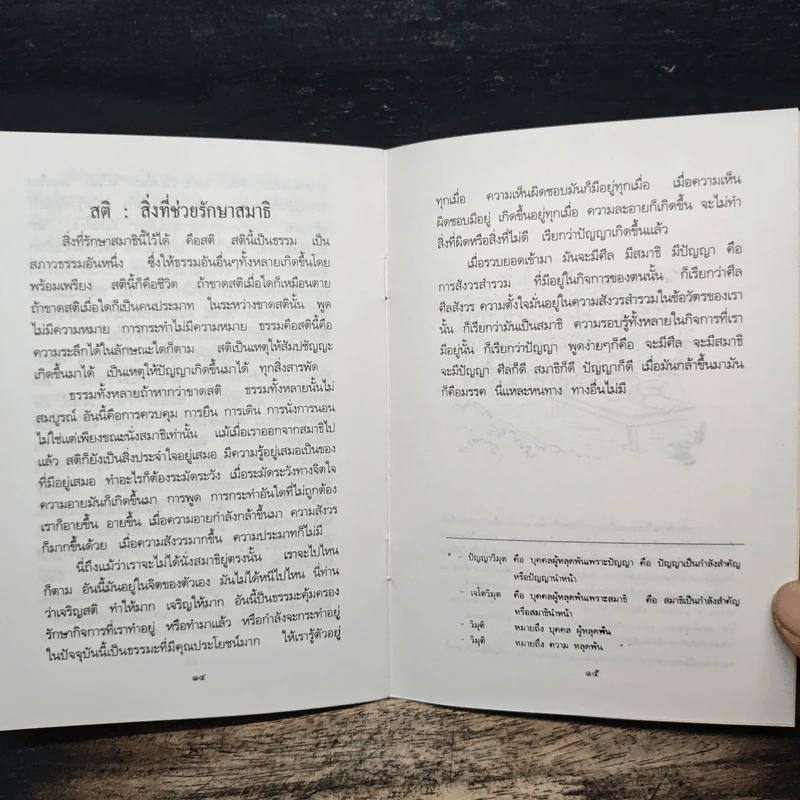 สติ : สิ่งที่ช่วยรักษาสมาธิ
สิ่งที่รักษาสมาธินี้ไว้ได้ คือสติ สตินี้เป็นธรรม เป็น
สภาวธรรมอันหนึ่ง ซึ่งให้ธรรมอันอื่นๆทั้งหลายเกิดขึ้นโดย
พร้อมเพรียง สตินี้ก็คือชีวิต ถ้าขาดสติเมื่อใดก็เหมือนตาย
ถ้าขาดสติเมื่อใดก็เป็นคนประมาท ในระหว่างขาดสตินั้น พูด
ไม่มีความหมาย การกระทำไม่มีความหมาย ธรรมคือสตินี้คือ
ความระลึกได้ในลักษณะใดก็ตาม สติเป็นเหตุให้สัมปชัญญะ
เกิดขึ้นมาได้ เป็นเหตุให้ปัญญาเกิดขึ้นมาได้ ทุกสิ่งสารพัด
ธรรมทั้งหลายถ้าหากว่าขาดสติ ธรรมทั้งหลายนั้นไม่
สมบูรณ์ อันนี้คือการควบคุม การยืน การเดิน การนั่งการนอน
ไม่ใช่แต่เพียงขณะนั่งสมาธิเท่านั้น แม้เมื่อเราออกจากสมาธิไป
แล้ว สติก็ยังเป็นสิ่งประจำใจอยู่เสมอ มีความรู้อยู่เสมอเป็นของ
ที่มีอยู่เสมอ ทำอะไรก็ต้องระมัดระวัง เมื่อระมัดระวังทางจิตใจ
ความอายมันก็เกิดขึ้นมา การพูด การกระทำอันใดที่ไม่ถูกต้อง
เราก็อายขึ้น อายขึ้น เมื่อความอายกำลังกล้าขึ้นมา ความสังวร
ก็มากขึ้นด้วย เมื่อความสังวรมากขึ้น ความประมาทก็ไม่มี
นี่ถึงแม้ว่าเราจะไม่ได้นั่งสมาธิอยู่ตรงนั้น เราจะไปไหน
ก็ตาม อันนี้มันอยู่ในจิตของตัวเอง มันไม่ได้หนีไปไหน นี่ท่าน
ว่าเจริญสติ ทำให้มาก เจริญให้มาก อันนี้เป็นธรรมะคุ้มครอง
รักษากิจการที่เราทำอยู่ หรือทำมาแล้ว หรือกำลังจะกระทำอยู่
ในปัจจุบันนี้เป็นธรรมะที่มีคุณประโยชน์มาก ให้เรารู้ตัวอยู่
๑๔
ทุกเมื่อ ความเห็นผิดชอบมันก็มีอยู่ทุกเมื่อ เมื่อความเห็น
ผิดชอบมีอยู่ เกิดขึ้นอยู่ทุกเมื่อ ความละอายก็เกิดขึ้น จะไม่ทำ
สิ่งที่ผิดหรือสิ่งที่ไม่ดี เรียกว่าปัญญาเกิดขึ้นแล้ว
เมื่อรวบยอดเข้ามา มันจะมีศีล มีสมาธิ มีปัญญา คือ
การสังวรสำรวม ที่มีอยู่ในกิจการของตนนั้น ก็เรียกว่าศีล
ศีลสังวร ความตั้งใจมั่นอยู่ในความสังวรสำรวมในข้อวัตรของเรา
นั้น ก็เรียกว่ามันเป็นสมาธิ ความรอบรู้ทั้งหลายในกิจการที่เรา
มีอยู่นั้น ก็เรียกว่าปัญญา พูดง่ายๆก็คือ จะมีศีล จะมีสมาธิ
จะมีปัญญา ศีลก็ดี สมาธิก็ดี ปัญญาก็ดี เมื่อมันกล้าขึ้นมามัน
ก็คือมรรค นี่แหละหนทาง ทางอื่นไม่มี
* - ปัญญาวิมุต คือ บุคคลผู้หลุดพ้นเพราะปัญญา คือ ปัญญาเป็นกำลังสำคัญ
หรือปัญญานำหน้า
- เจโตวิมุต คือ บุคคลผู้หลุดพ้นเพราะสมาธิ คือ สมาธิเป็นกำลังสำคัญ
หรือสมาธินำหน้า
- วิมุต หมายถึง บุคคล ผู้หลุดพ้น
- วิมุติ หมายถึง ความ หลุดพ้น
๑๕